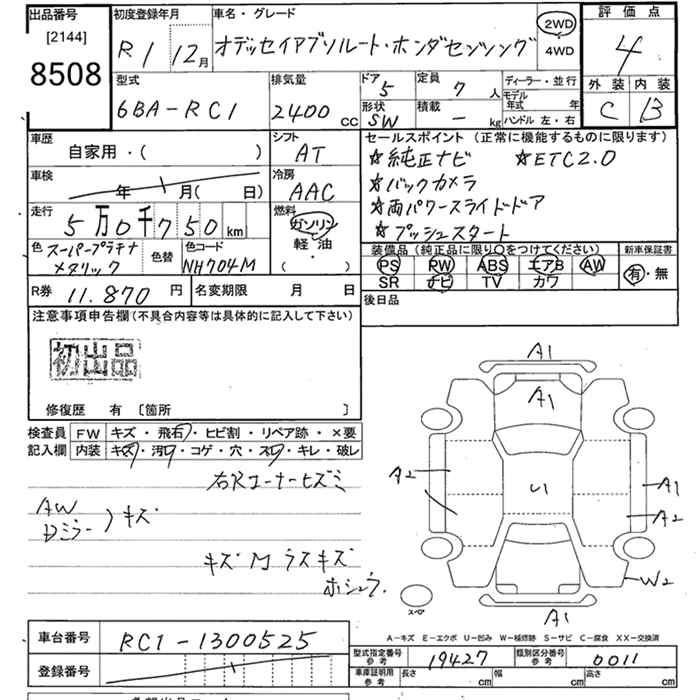 出品番号 [2144] 8508
初度登録年月 R1 12月
車名・グレード オデッセイアブソルート・ホンダセンシング
2WD 4WD
評価点 4
外装 内装 C B
型式 6BA-RC1
排気量 2400 cc
ドア 5 定員 7 人
形状 SW 積載 - kg
ディーラー・並行
モデル年式 年
ハンドル 左・右
車歴 自家用・( )
シフト AT
セールスポイント (正常に機能するものに限ります)
☆純正ナビ ☆ETC2.0
☆バックカメラ
☆両パワースライドドア
☆プッシュスタート
車検 年 月( 日)
冷房 AAC
走行 5万0千750km
燃料 ガソリン 軽・油 ( )
色 スーパープラチナメタリック 色替 色コード NH704M
装備品 (純正品に限り○をつけてください) 新車保証書
PS PW ABS エアB AW 有・無
SR ナビ TV カワ
R券 11.870 円 名変期限 月 日
後日品
注意事項申告欄(不具合内容等は具体的に記入して下さい)
初出品
修復歴 有 〔箇所 〕
検査員 FW キズ・飛石・ヒビ割・リペア跡・×要
記入欄 内装 キズ・汚れ・コゲ・穴・スレ・キレ・破レ
右Rコーナーヒズミ
AW
Dミラー 〉キズ
キズM ラスキズ
ホシュウ
A1
A1
A2 U1 A1
A2
W2
スペア
A1
A-キズ E-エクボ U-凹み W-補修跡 S-サビ C-腐食 XX-交換済
車台番号 RC1-1300525
型式指定番号 参考 19427 類別区分番号 参考 0011
登録番号
車庫証明用 参考 長さ cm 幅 cm 高さ cm